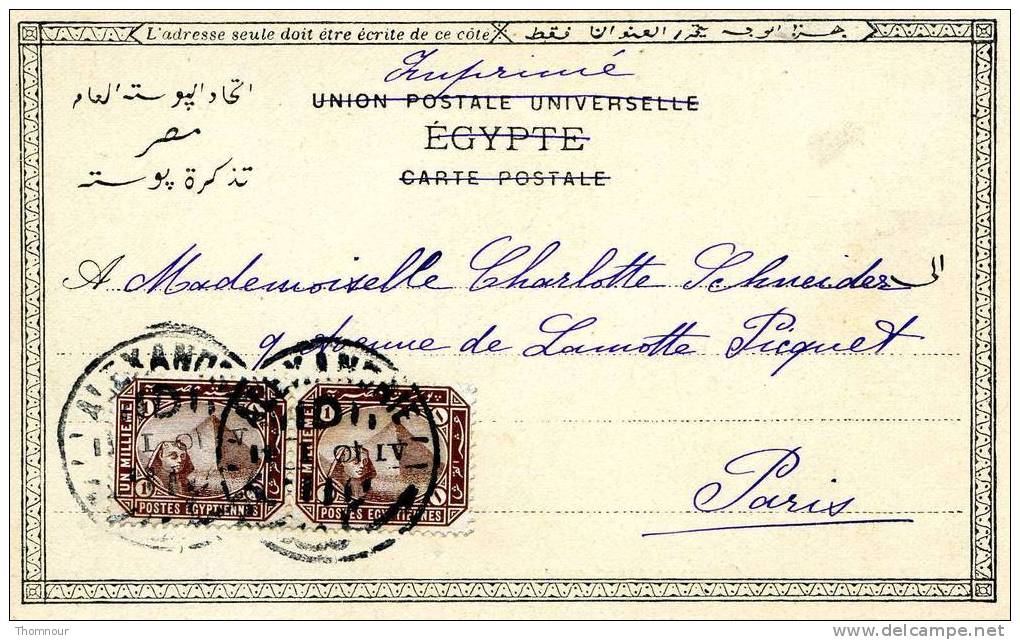 L'adresse seule doit être écrite de ce côté
Imprimé
UNION POSTALE UNIVERSELLE
ÉGYPTE
CARTE POSTALE
اتحاد البوسته العام
مصر
تذكرة بوسته
A Mademoiselle Charlotte Schneider الى
9 Avenue de Lamotte Picquet
Paris
ALEXANDRIE
UN MILLIEME
1
POSTES EGYPTIENNES
ALEXANDRIE
UN MILLIEME
1
POSTES EGYPTIENNES
Thomnour
delcampe.net